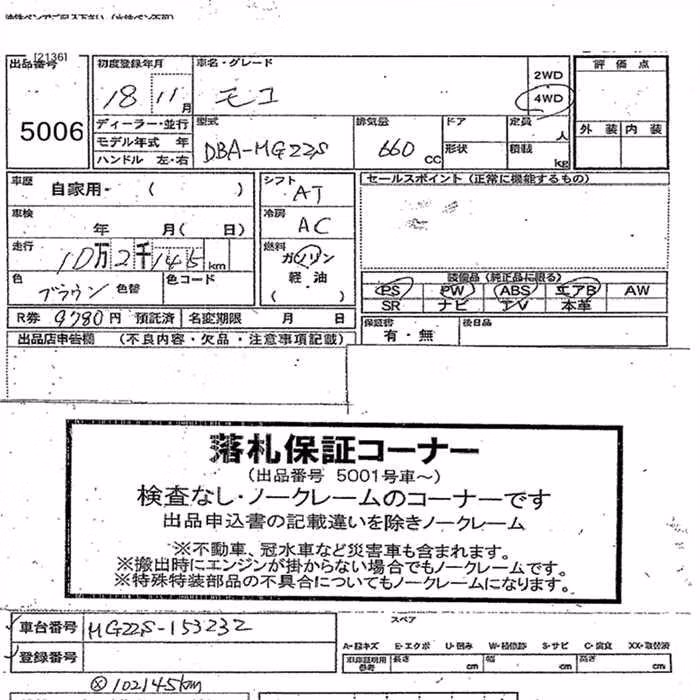 [2136]
出品番号 5006
初度登録年月 18 11月
車名・グレード モコ
2WD
4WD
評価点
外装 内装
ディーラー・並行
モデル年式 年
ハンドル 左・右
型式 DBA-MG22S
排気量 660 CC
ドア
形状
定員 人
積載 kg
車歴 自家用- ( )
車検 年 月( 日)
走行 10万2千145km
色 ブラウン 色替
色コード
シフト AT
冷房 AC
燃料 ガソリン
軽・油
( )
セールスポイント (正常に機能するもの)
装備品 (純正品に限る)
PS PW ABS エアB AW
SR ナビ TV 本革
R券 9780円 預託済
名変期限 月 日
保証書 有・無
後日品
出品店申告欄 (不良内容・欠品・注意事項記載)
落札保証コーナー
(出品番号 5001号車~)
検査なし・ノークレームのコーナーです
出品申込書の記載違いを除きノークレーム
※不動車、冠水車など災害車も含まれます。
※搬出時にエンジンが掛からない場合でもノークレームです。
※特殊特装部品の不具合についてもノークレームになります。
車台番号 MG22S-153232
登録番号
スペア
A・線キズ E・エクボ U・凹み W・補修跡 S・サビ C・腐食 XX・取替済
車庫証明用参考 長さ cm 幅 cm 高さ cm
ⓧ102145km